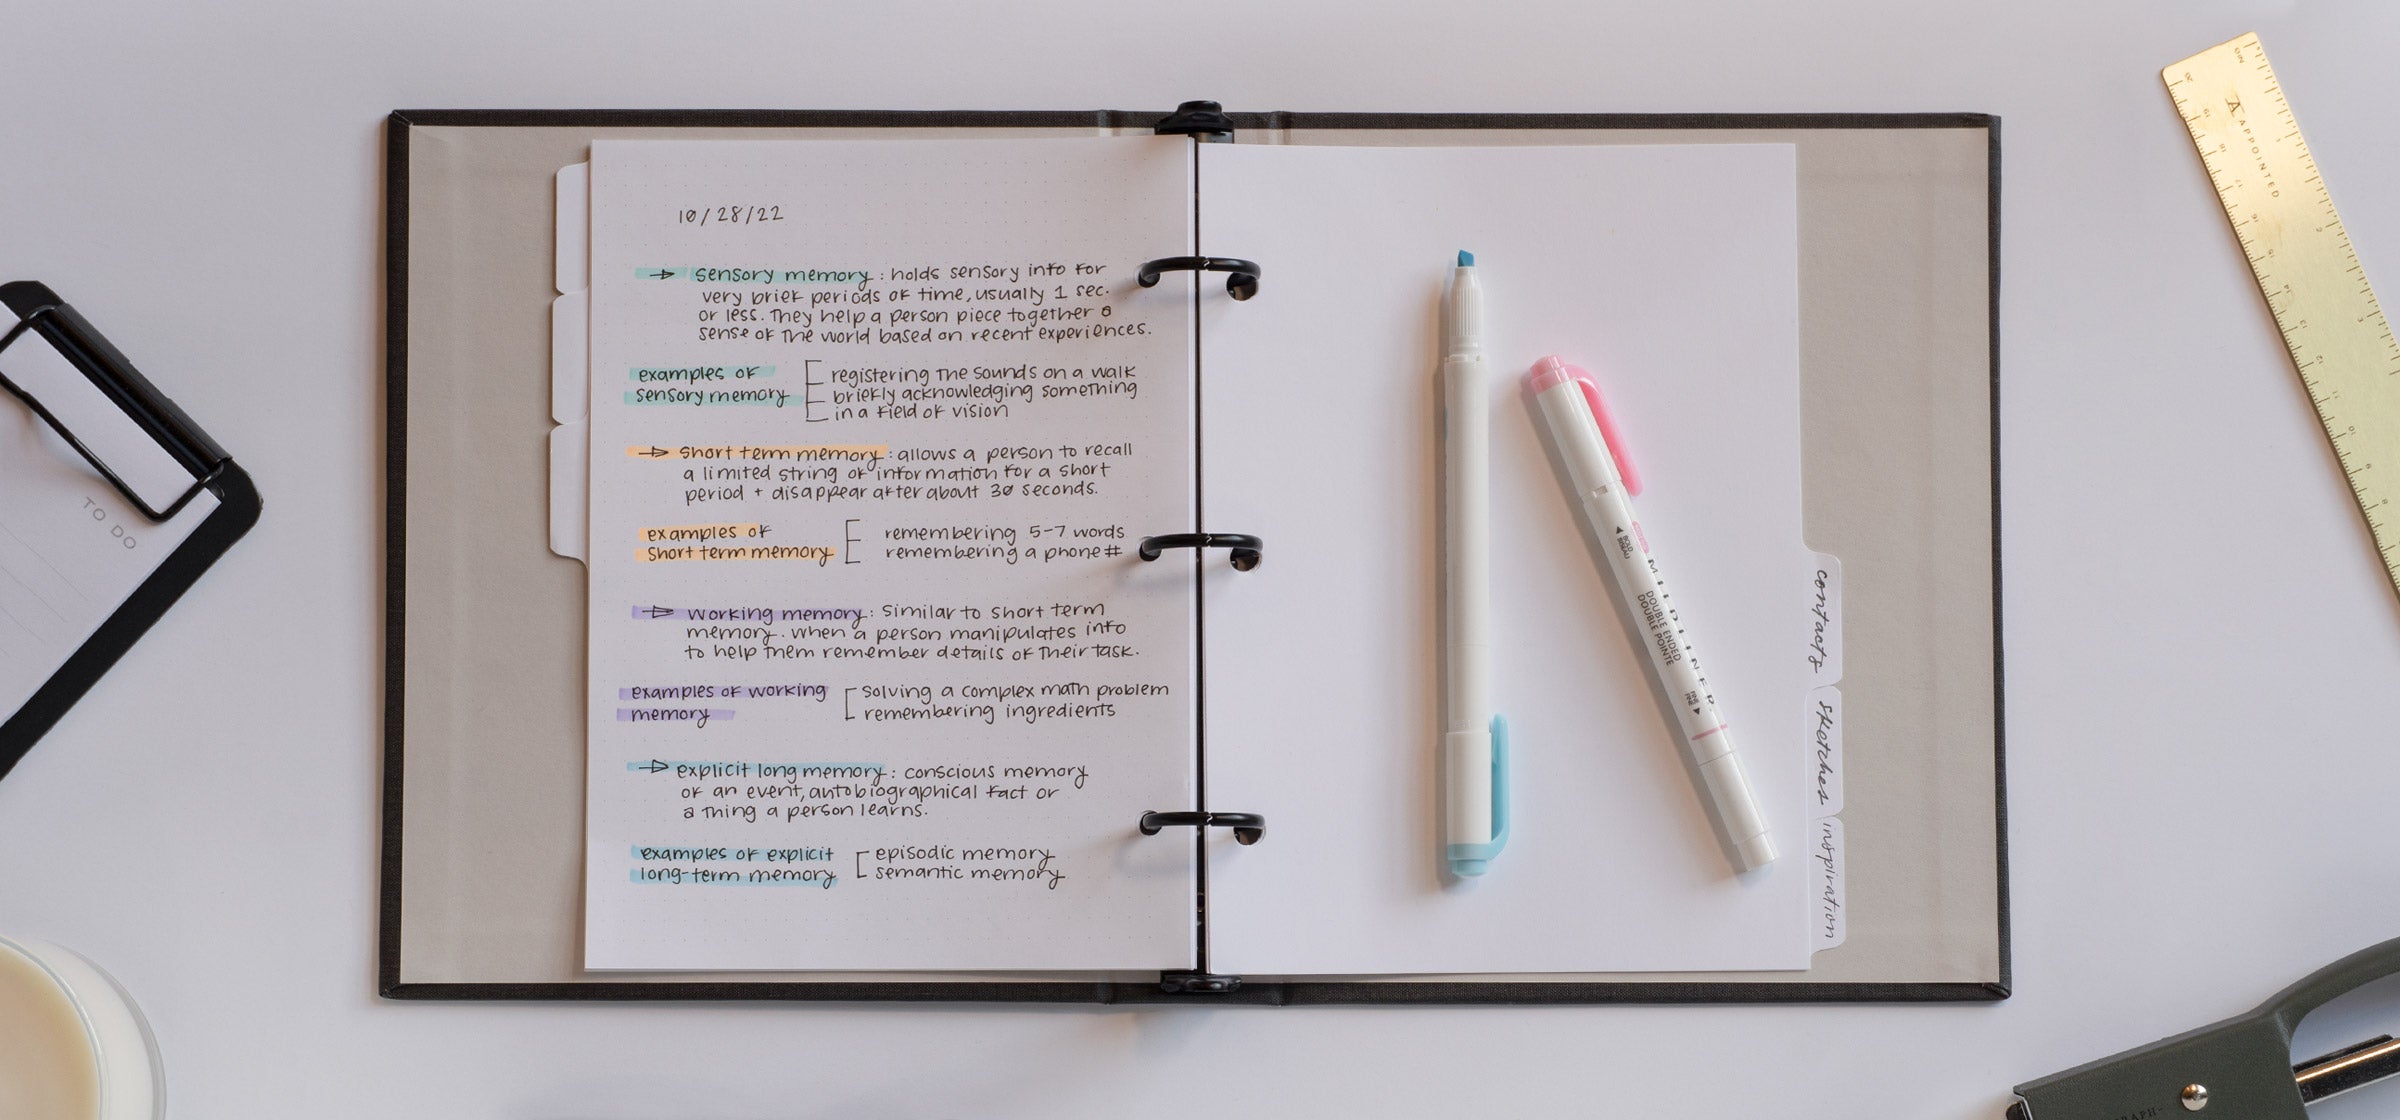 10/28/22
→ sensory memory: holds sensory info for
very brief periods of time, usually 1 sec.
or less. They help a person piece together a
sense of the world based on recent experiences.
examples of
sensory memory
registering the sounds on a walk
briefly acknowledging something
in a field of vision
→ short term memory: allows a person to recall
a limited string of information for a short
period + disappear after about 30 seconds.
examples of
short term memory
remembering 5-7 words
remembering a phone #
→ working memory: similar to short term
memory. when a person manipulates info
to help them remember details of their task.
examples of working
memory
solving a complex math problem
remembering ingredients
→ explicit long memory: conscious memory
of an event, autobiographical fact or
a thing a person learns.
examples of explicit
long-term memory
episodic memory
semantic memory
TO DO
MILDLINER
DOUBLE ENDED
DOUBLE POINTE
contacts
sketches
inspiration
A APPOINTED